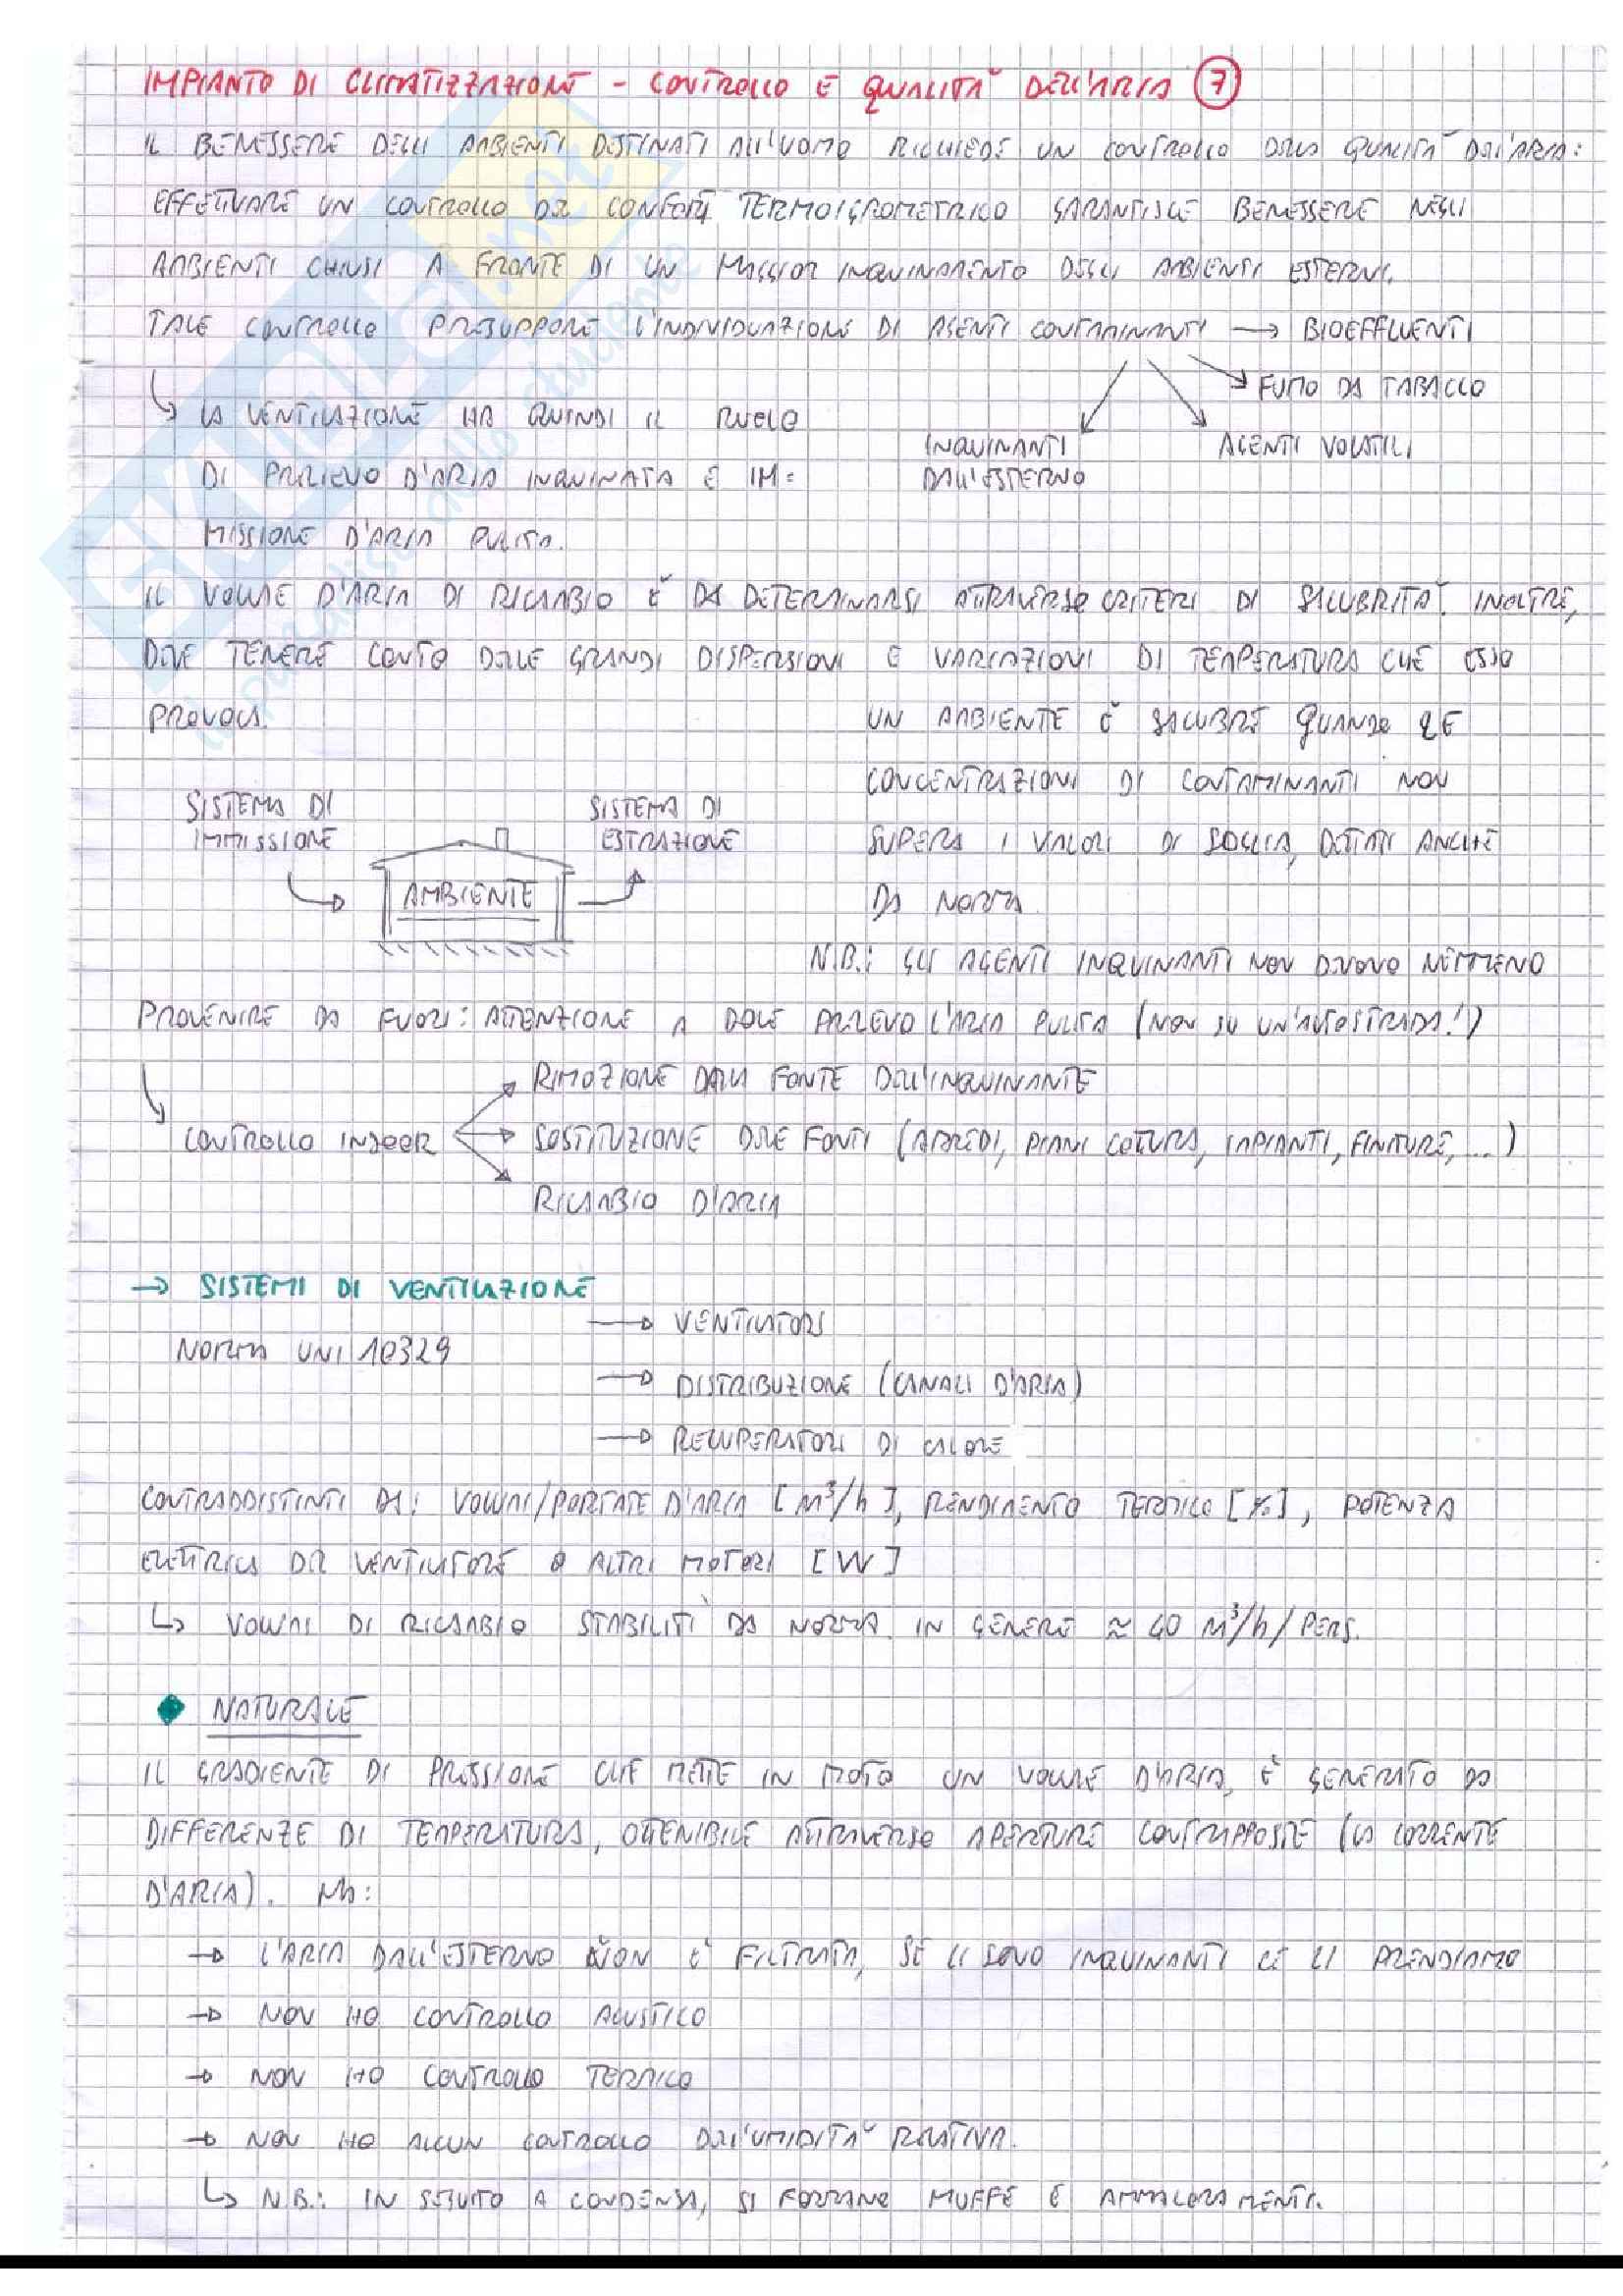 IMPIANTO DI CLIMATIZZAZIONE - CONTROLLO E QUALITÀ DELL'ARIA 7
IL BENESSERE DEGLI AMBIENTI DESTINATI ALL'UOMO RICHIEDE UN CONTROLLO DELLA QUALITÀ DELL'ARIA:
EFFETTUARE UN CONTROLLO DEL CONFORT TERMOIGROMETRICO GARANTISCE BENESSERE NEGLI
AMBIENTI CHIUSI A FRONTE DI UN MAGGIOR INQUINAMENTO DEGLI AMBIENTI ESTERNI.
TALE CONTROLLO PRESUPPONE L'INDIVIDUAZIONE DI AGENTI CONTAMINANTI → BIOEFFLUENTI
FUMO DA TABACCO
LA VENTILAZIONE HA QUINDI IL RUOLO
INQUINANTI AGENTI VOLATILI
DI PRELIEVO D'ARIA INQUINATA E IM=
DALL'ESTERNO
MISSIONE D'ARIA PULITA.
IL VOLUME D'ARIA DI RICAMBIO È DA DETERMINARSI ATTRAVERSO CRITERI DI SALUBRITÀ. INOLTRE,
DEVE TENERE CONTO DELLE GRANDI DISPERSIONI E VARIAZIONI DI TEMPERATURA CHE ESSO
PROVOCA.
UN AMBIENTE È SALUBRE QUANDO LE
CONCENTRAZIONI DI CONTAMINANTI NON
SISTEMA DI SISTEMA DI
IMMISSIONE ESTRAZIONE
SUPERA I VALORI DI SOGLIA, DETTATI ANCHE
AMBIENTE
DA NORMA.
N.B.: GLI AGENTI INQUINANTI NON DEVONO NEMMENO
PROVENIRE DA FUORI: ATTENZIONE A DOVE PRELEVO L'ARIA PULITA (NON SU UN'AUTOSTRADA!)
RIMOZIONE DALLA FONTE DELL'INQUINANTE
CONTROLLO INDOOR → SOSTITUZIONE DELLE FONTI (ARREDI, PIANI COTTURA, IMPIANTI, FINITURE, ...)
RICAMBIO D'ARIA
→ SISTEMI DI VENTILAZIONE
→ VENTILATORI
NORMA UNI 10329
→ DISTRIBUZIONE (CANALI D'ARIA)
→ RECUPERATORI DI CALORE
CONTRADDISTINTI DA: VOLUMI/PORTATE D'ARIA [m³/h], RENDIMENTO TERMICO [%], POTENZA
ELETTRICA DEL VENTILATORE O ALTRI MOTORI [W]
↳ VOLUMI DI RICAMBIO STABILITI DA NORMA. IN GENERE ≈ 40 m³/h/PERS.
NATURALE
IL GRADIENTE DI PRESSIONE CHE METTE IN MOTO UN VOLUME D'ARIA, È GENERATO DA
DIFFERENZE DI TEMPERATURA, OTTENIBILE ATTRAVERSO APERTURE CONTRAPPOSTE (LA CORRENTE
D'ARIA). Nb:
→ L'ARIA DALL'ESTERNO NON È FILTRATA, SE CI SONO INQUINANTI CE LI PRENDIAMO
→ NON HO CONTROLLO ACUSTICO
→ NON HO CONTROLLO TERMICO
→ NON HO ALCUN CONTROLLO DELL'UMIDITÀ RELATIVA.
↳ N.B.: IN SEGUITO A CONDENSA, SI FORMANO MUFFE E AMMALORAMENTI.
SKUOLA.net
il paradiso dello studente